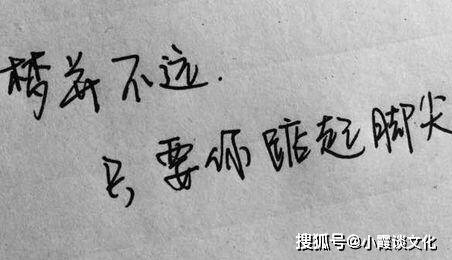 梦并不远.
只要你踮起脚尖
搜狐号@小霞谈文化